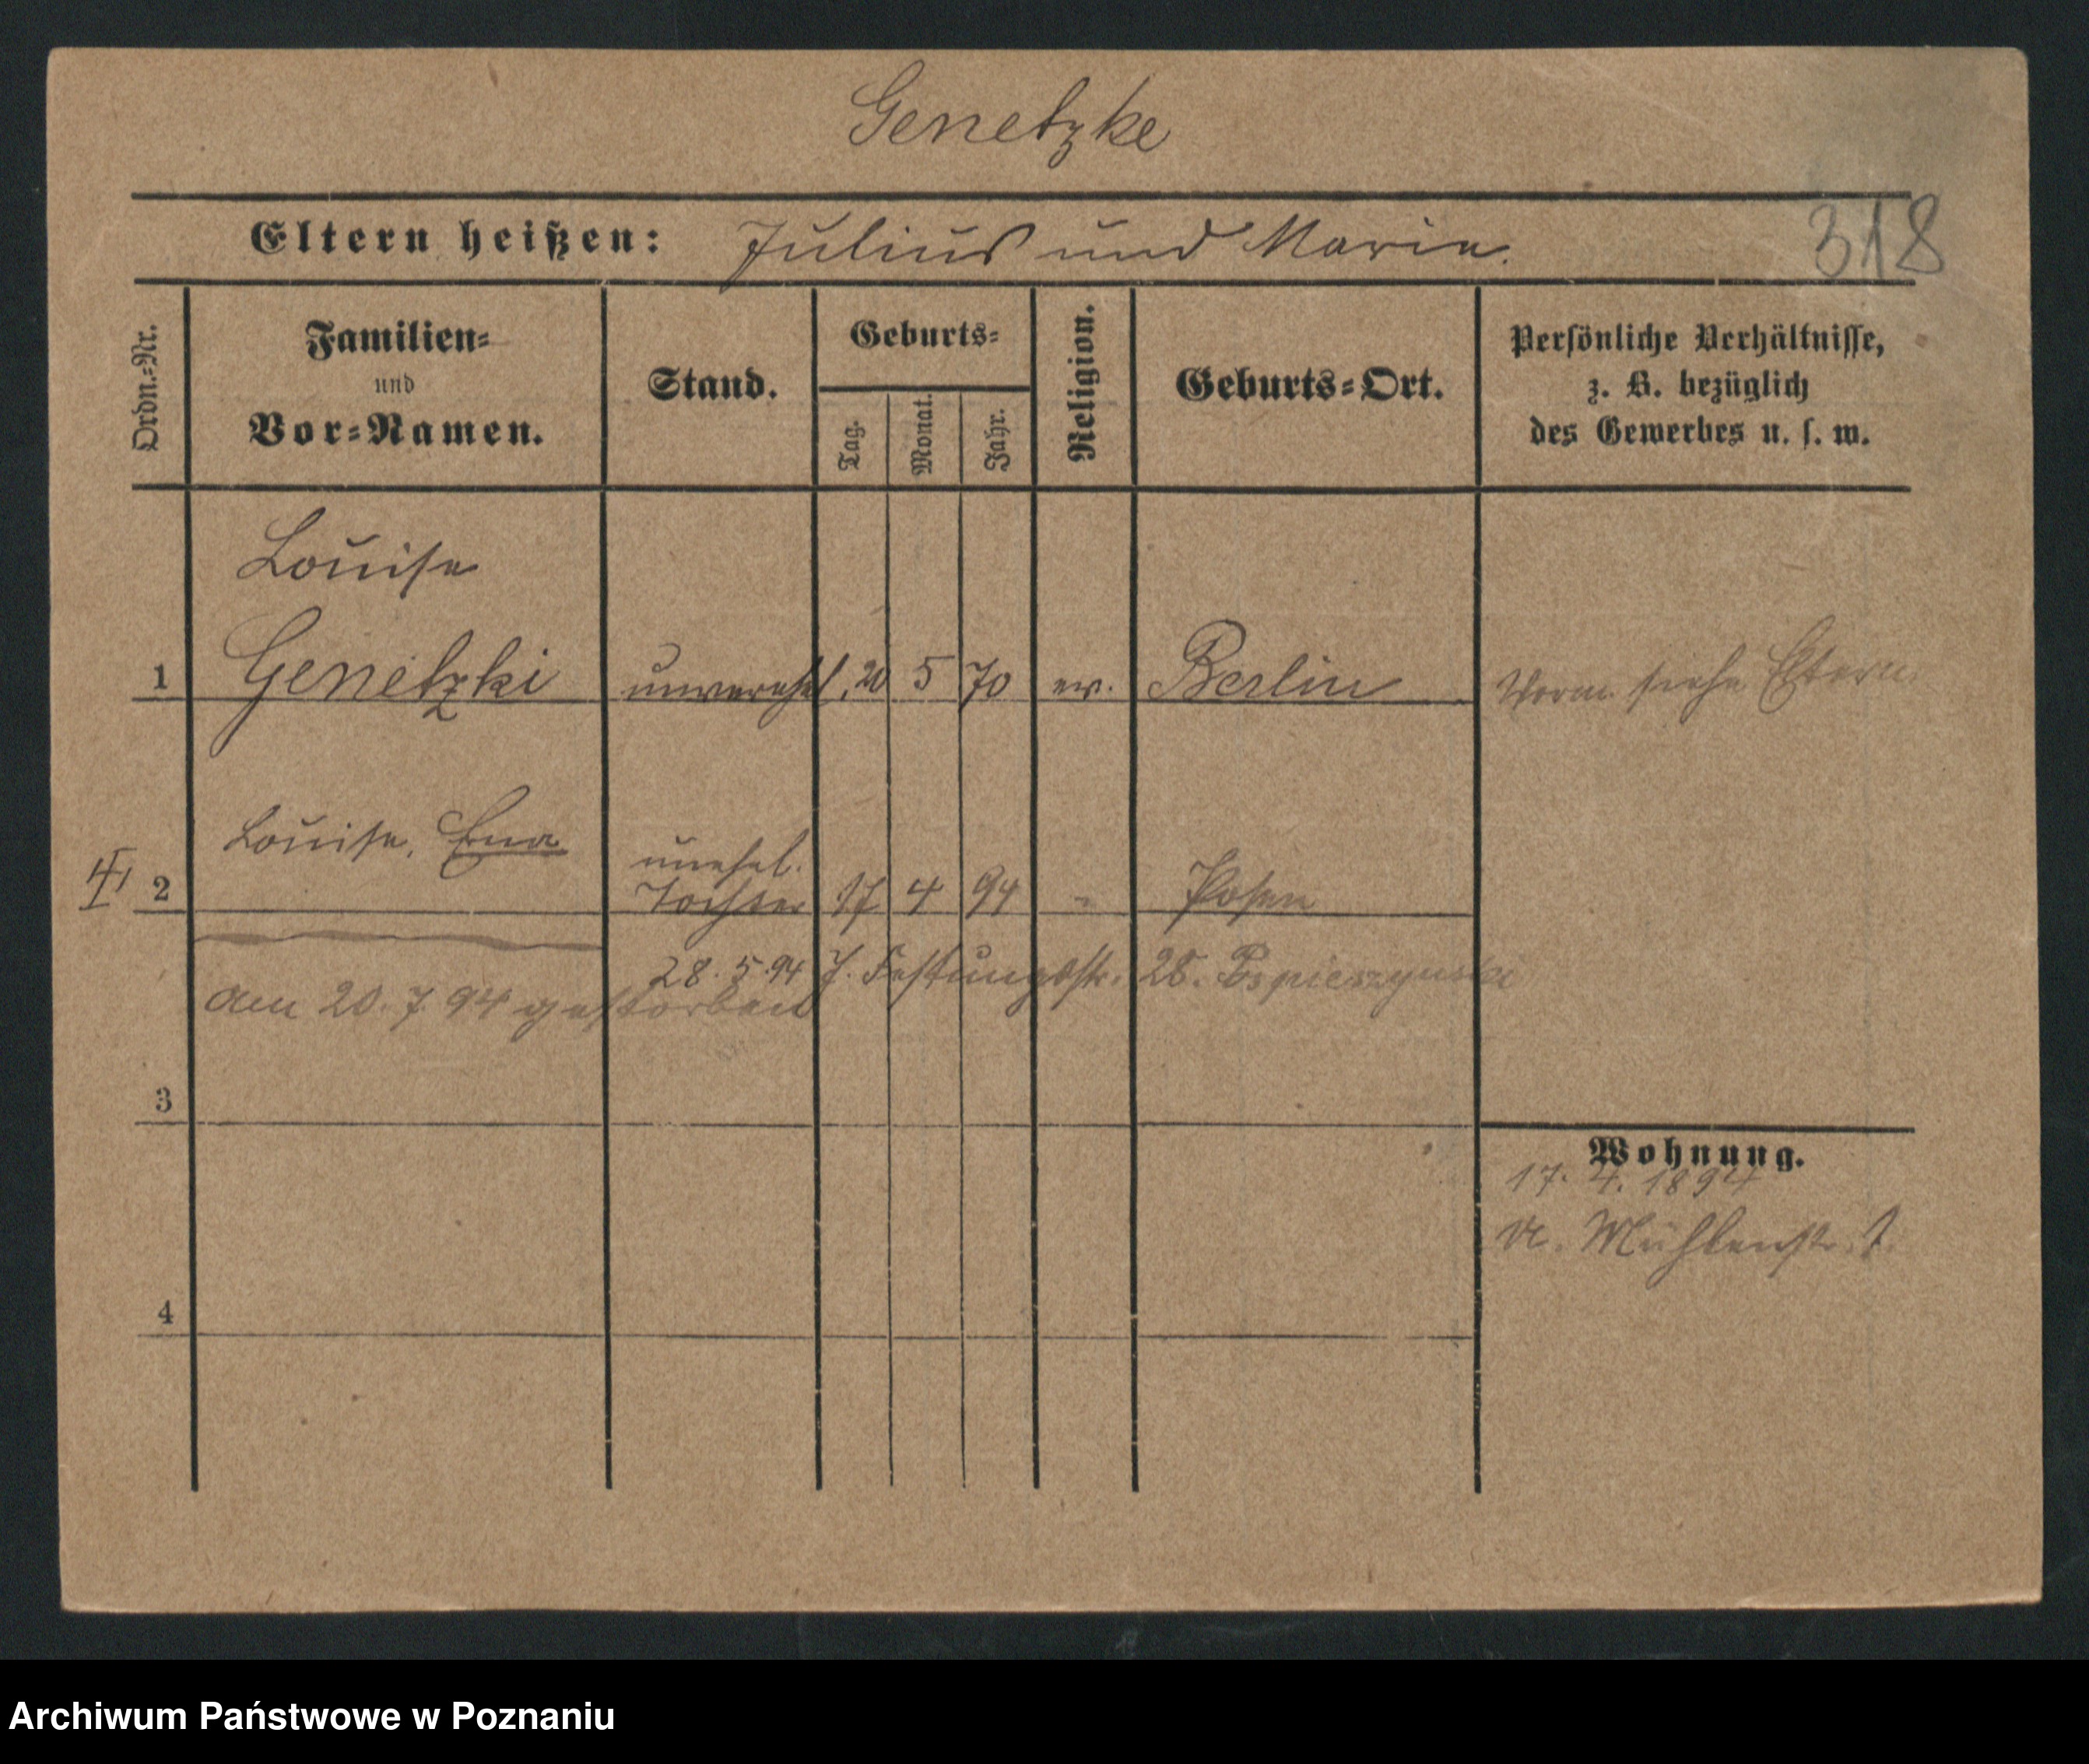 Genetzke
Eltern heißen: Julius und Marie.
318
Ordn.-Nr.
Familien-
und
Vor-Namen.
Stand.
Geburts-
Tag.
Monat.
Jahr.
Religion.
Geburts-Ort.
Persönliche Verhältnisse,
z. B. bezüglich
des Gewerbes u. s. w.
Louise
1 Genetzki unverehel. 20 5 70 ev. Berlin Vorm. siehe Eltern.
Louise, Ena
unehel.
2 Tochter 17 4 94 " Posen
28. 5. 94 J. Festungsstr. 28. Pospieszynski
am 20. 7. 94 gestorben
3
Wohnung.
17. 4. 1894
Mühlenstr.
4
Archiwum Państwowe w Poznaniu